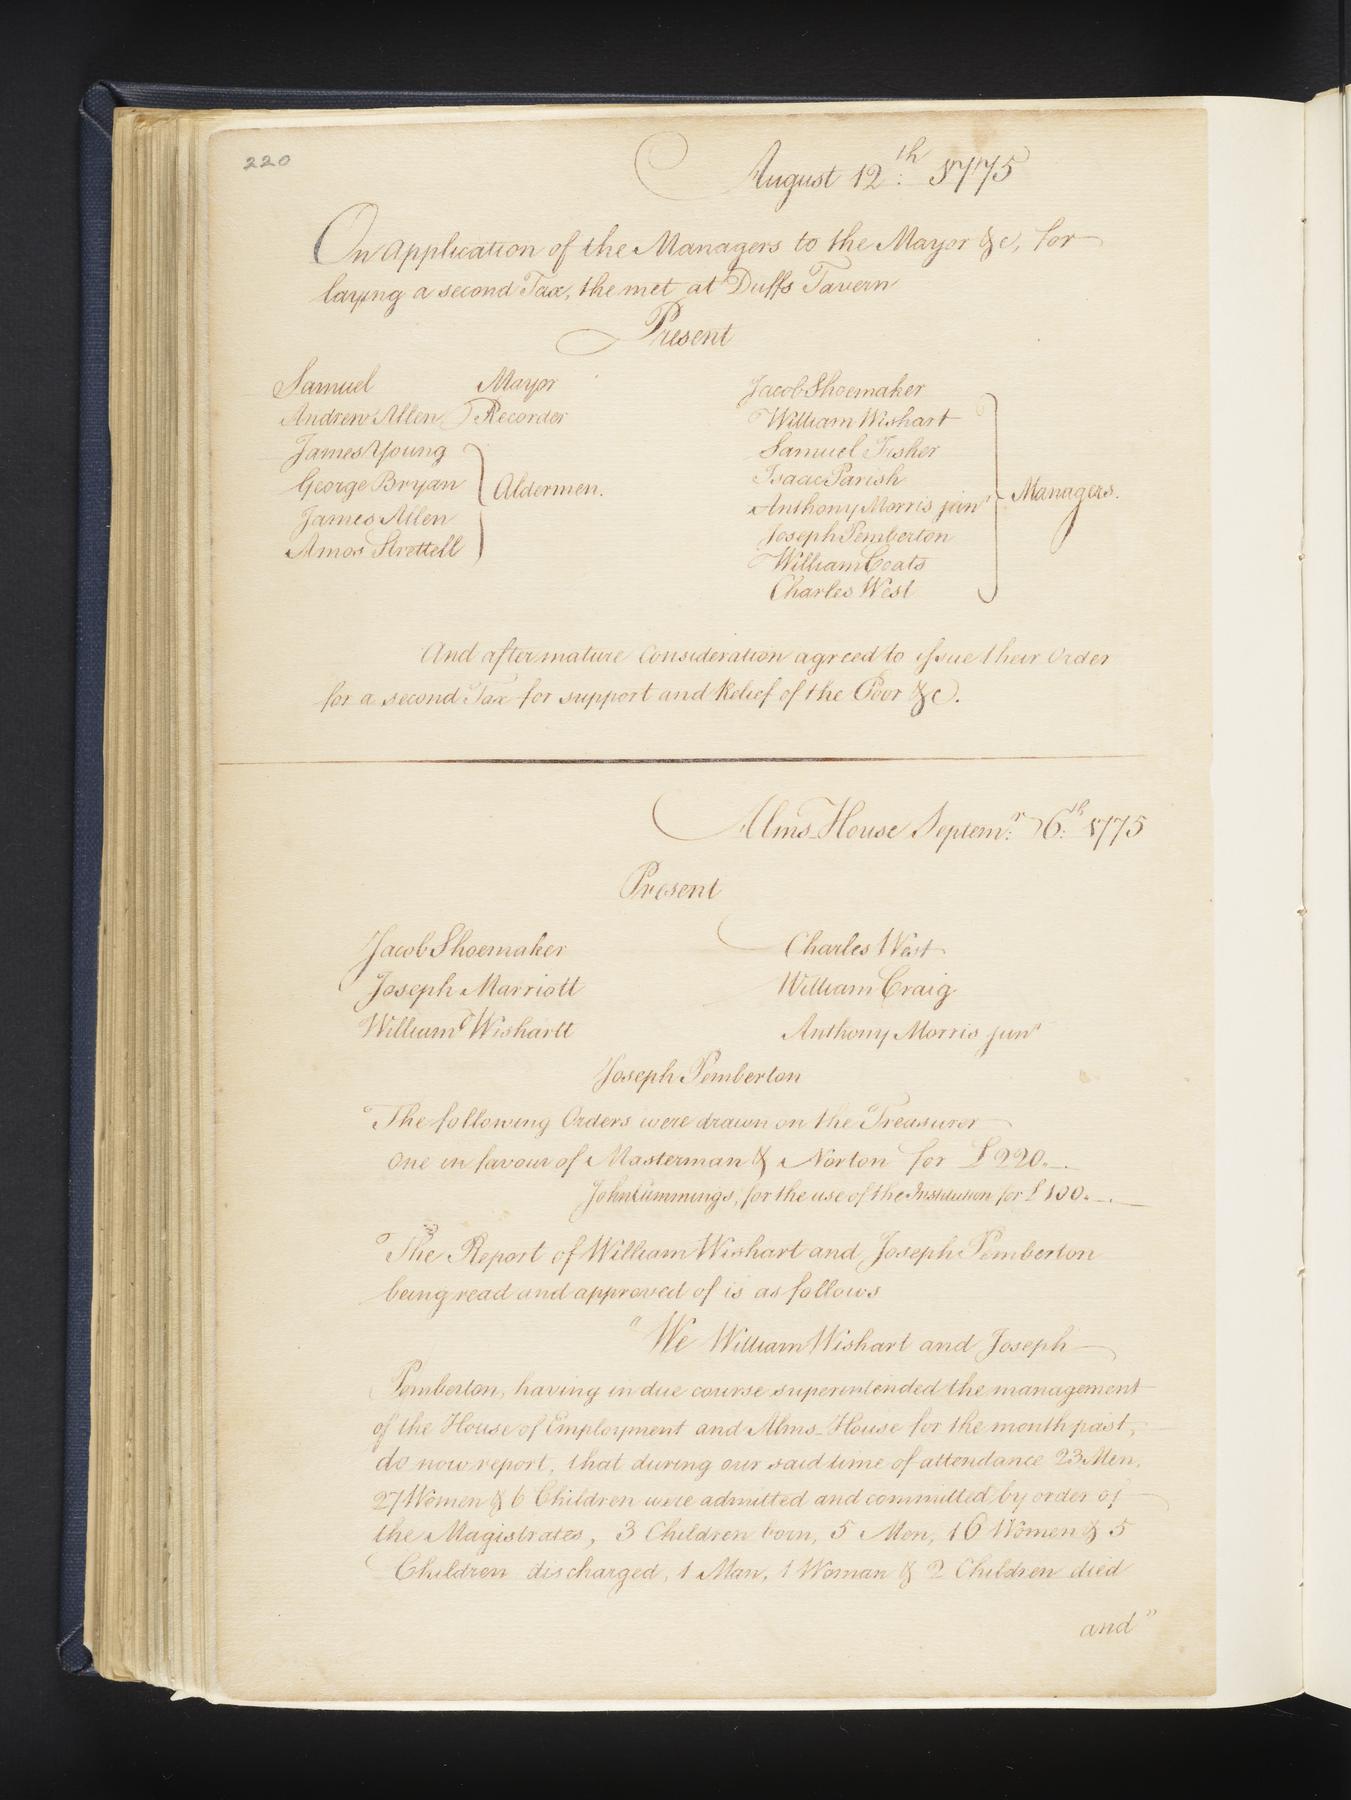 220
August 12:th 1775
On application of the Managers to the Mayor &c, for
laying a second Tax, the met at Duffs Tavern
Present
Samuel Mayor
Andrew Allen } Recorder
James Young
George Bryan
James Allen
Amos Strettell
Aldermen.
Jacob Shoemaker
William Wishart
Samuel Fisher
Isaac Parish
Anthony Morris junr
Joseph Pemberton
William Coats
Charles West
Managers.
And after mature Consideration agreed to issue their Order
for a second Tax for support and Relief of the Poor &c.
Alms-House Septem:r 6:th 1775
Present
Jacob Shoemaker
Joseph Marriott
William Wishartt
Charles West
William Craig
Anthony Morris junr
Joseph Pemberton
The following Orders were drawn on the Treasurer
One in favour of Masterman & Norton for £220.—
John Cummings, for the use of the Institution for £100.—
The Report of William Wishart and Joseph Pemberton
being read and approved of is as follows
"We William Wishart and Joseph
Pemberton, having in due course superintended the management
of the House of Employment and Alms-House for the month past,
do now report, that during our said time of attendance 23 Men,
27 Women & 6 Children were admitted and committed by order of
the Magistrates, 3 Children born, 5 Men, 16 Women & 5
Children discharged, 1 Man, 1 Woman & 2 Children died
and"